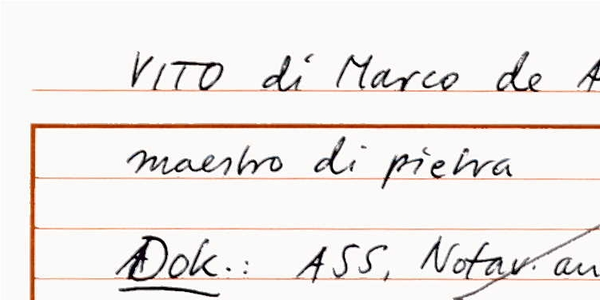 VITO di Marco de
maestro di pietra
Dok.: ASS, Notar. an